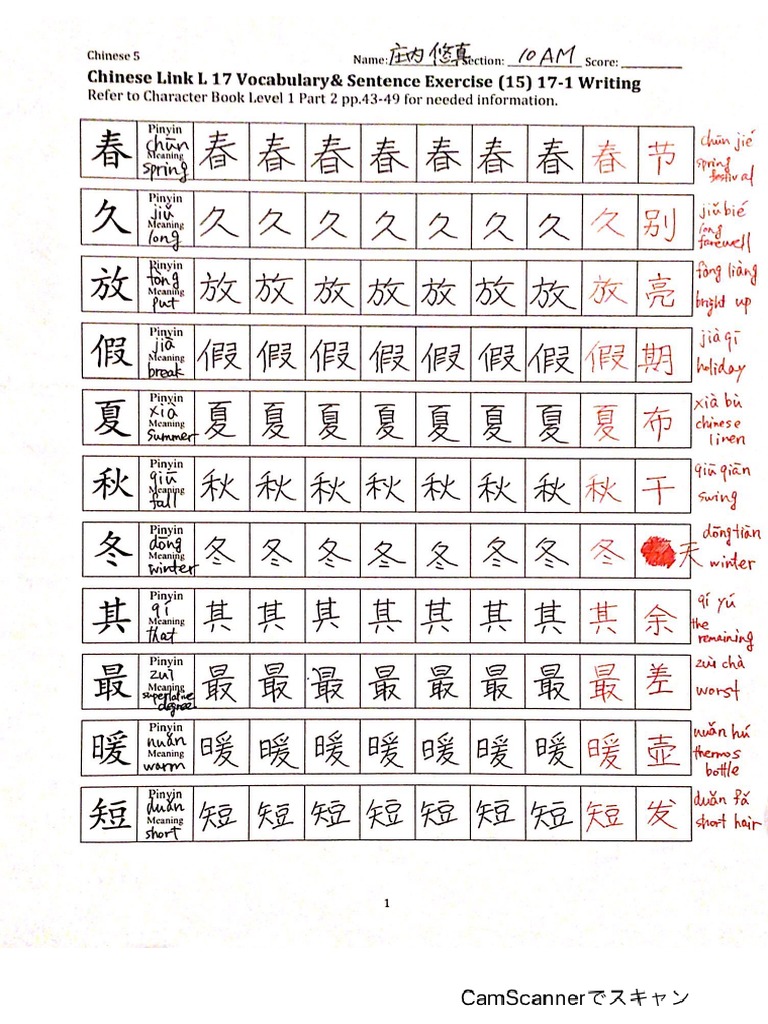 Chinese 5
Name: 庄内 悠真 Section: 10 AM Score:
Chinese Link L 17 Vocabulary& Sentence Exercise (15) 17-1 Writing
Refer to Character Book Level 1 Part 2 pp.43-49 for needed information.
春 Pinyin chūn Meaning spring 春 春 春 春 春 春 春 春 节 chūn jié spring festival
久 Pinyin jiǔ Meaning long 久 久 久 久 久 久 久 久 别 jiǔ bié long farewell
放 Pinyin fòng Meaning put 放 放 放 放 放 放 放 放 亮 fàng liàng bright up
假 Pinyin jià Meaning break 假 假 假 假 假 假 假 假 期 jià qī holiday
夏 Pinyin xià Meaning summer 夏 夏 夏 夏 夏 夏 夏 夏 布 xià bù chinese linen
秋 Pinyin qiū Meaning fall 秋 秋 秋 秋 秋 秋 秋 秋 千 qiū qiān swing
冬 Pinyin dōng Meaning winter 冬 冬 冬 冬 冬 冬 冬 冬 天 dōng tiān winter
其 Pinyin qí Meaning that 其 其 其 其 其 其 其 其 余 qí yú the remaining
最 Pinyin zuì Meaning superlative degree 最 最 最 最 最 最 最 最 差 zuì chà worst
暖 Pinyin nuǎn Meaning warm 暖 暖 暖 暖 暖 暖 暖 暖 壶 nuǎn hú thermos bottle
短 Pinyin duǎn Meaning short 短 短 短 短 短 短 短 短 发 duǎn fǎ short hair
1
CamScannerでスキャン